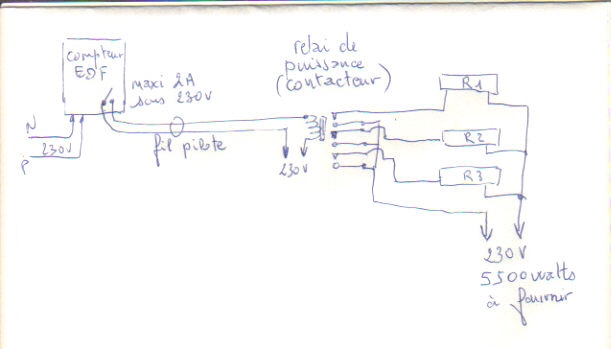 compteur
EDF
maxi 2A
sous 230V
N
230V
P
fil pilote
relai de
puissance
(contacteur)
230V
R1
R2
R3
230V
5500 watts
à fournir